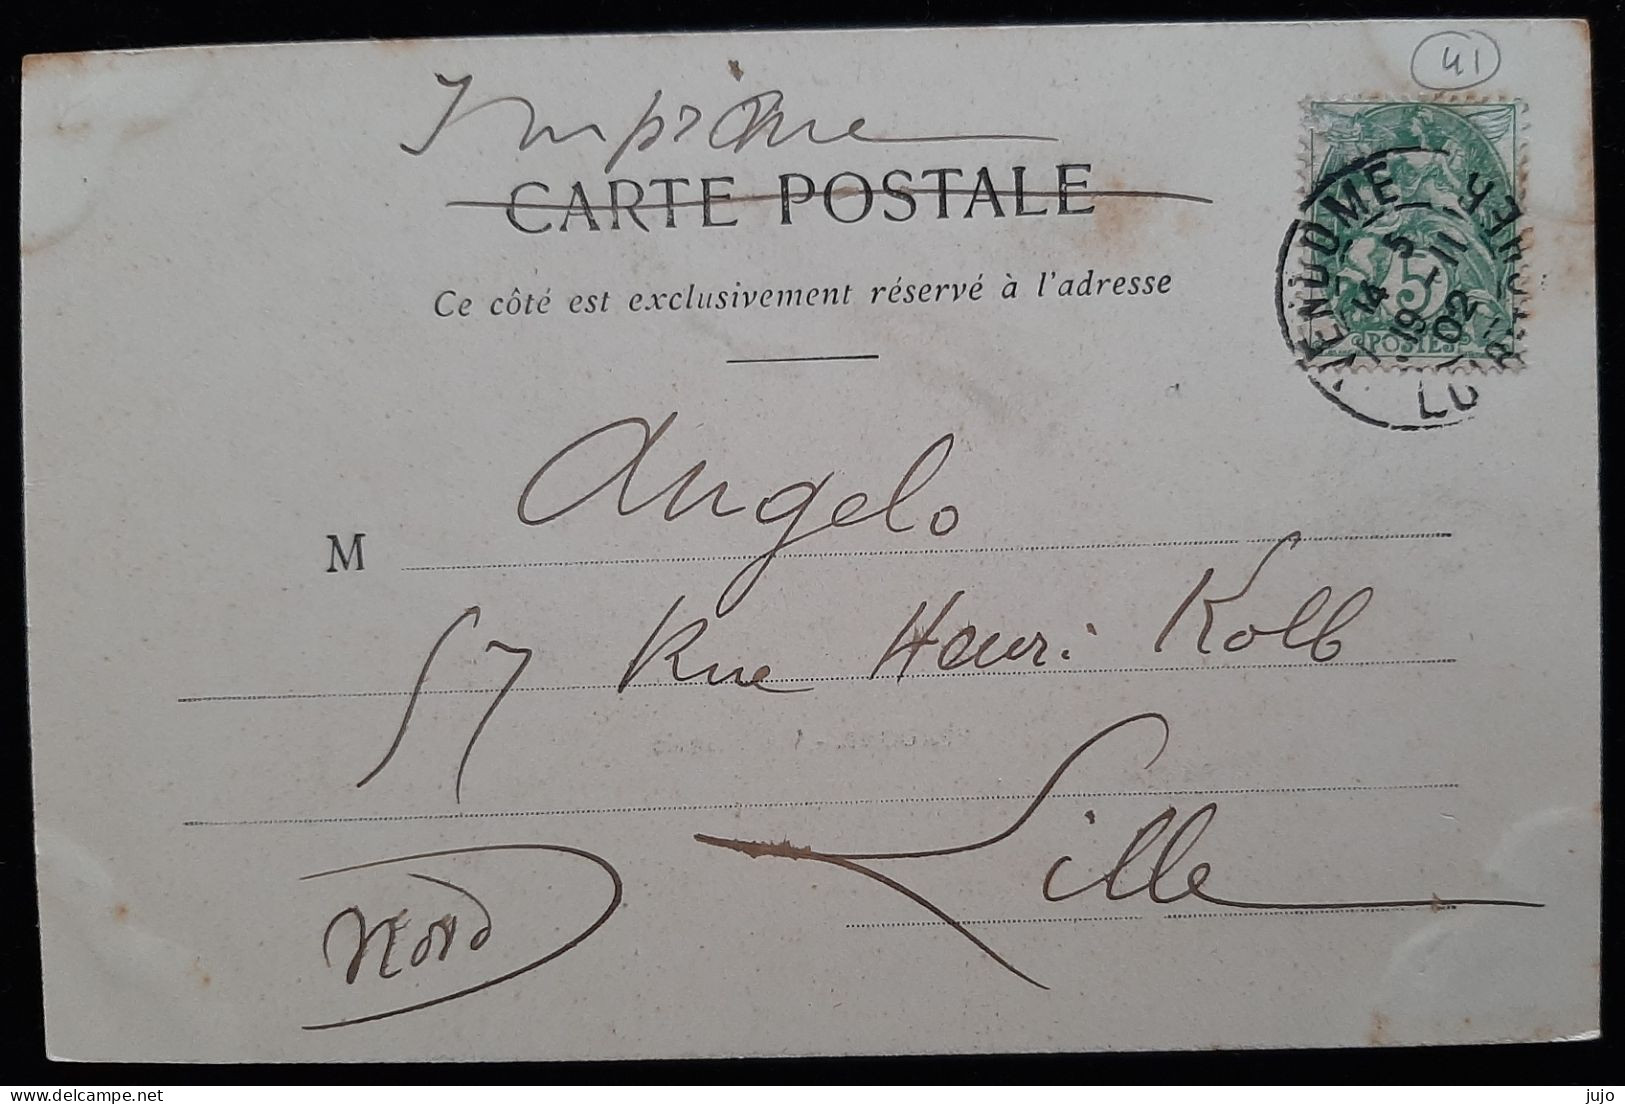 41
Imprime
CARTE POSTALE
Ce côté est exclusivement réservé à l'adresse
VENDOME
LOIR-ET-CHER
5
14 - 11
02
5
POSTES
Angelo
M
57 Rue Henri Kolb
Lille
Nord
jujo